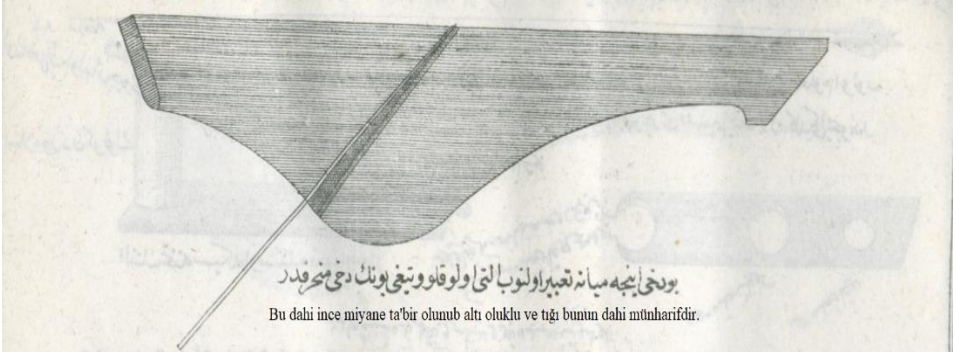 بودخی اینجه میانه تعبیر اولنوب التی اولوقلو و تیغی بونك دخی منحرفدر
Bu dahi ince miyane ta'bir olunub altı oluklu ve tığı bunun dahi münharifdir.